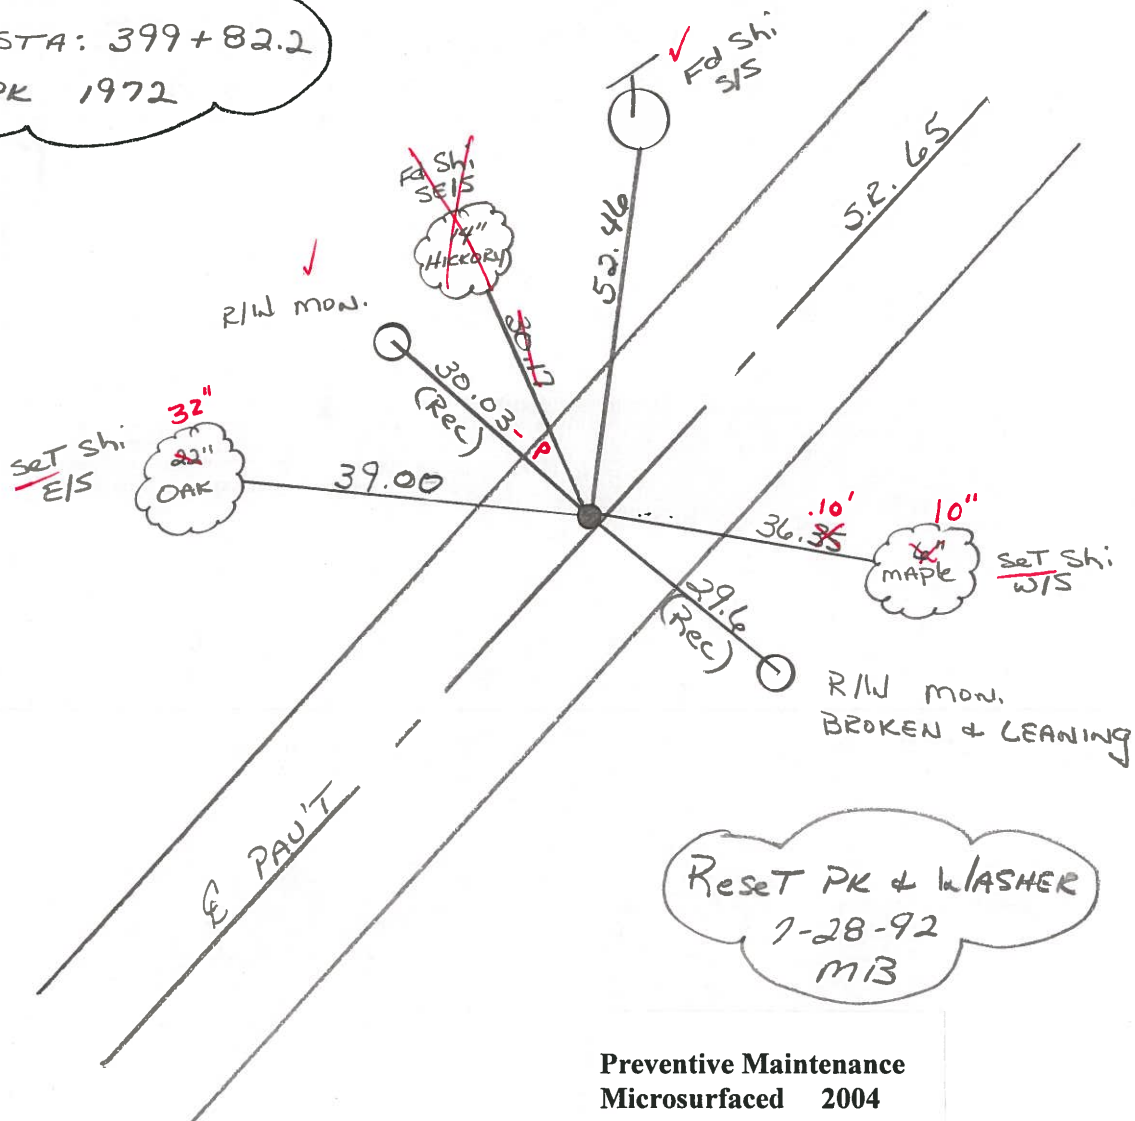 STA: 399+82.2
PK 1972
Fd Shi
S/S
Fd Shi
SE/S
14"
HICKORY
R/W MON.
30.17
52.46
S.R. 65
30.03
(Rec)
32"
22"
OAK
SeT Shi
E/S
39.00
.10'
36.35
10"
MAPle
SeT Shi
W/S
29.6
(Rec)
R/W MON.
BROKEN & LEANING
℄ PAV'T
ReseT PK & WASHER
7-28-92
MB
Preventive Maintenance
Microsurfaced 2004